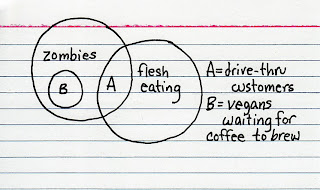 zombies
B
A
flesh
eating
A=drive-thru
customers
B=vegans
waiting for
coffee to brew